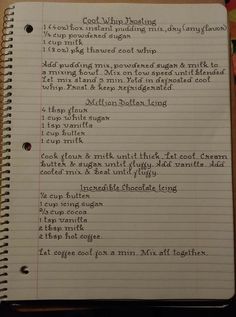 Cool Whip Frosting
1 (4oz) box instant pudding mix, dry (any flavor)
1/4 cup powdered sugar
1 cup milk
1 (8oz) pkg thawed cool whip
Add pudding mix, powdered sugar & milk to
a mixing bowl. Mix on low speed until blended.
Let mix stand 3 min. Fold in defrosted cool
whip. Frost & keep refrigerated.
Million Dollar Icing
4 tbsp flour
1 cup white sugar
1 tsp vanilla
1 cup butter
1 cup milk
Cook flour & milk until thick. Let cool. Cream
butter & sugar until fluffy. Add vanilla. Add
cooled mix & beat until fluffy.
Incredible Chocolate Icing
1/2 cup butter
1 cup icing sugar
2/3 cup cocoa
1 tsp vanilla
2 tbsp milk
2 tbsp hot coffee
Let coffee cool for a min. Mix all together.